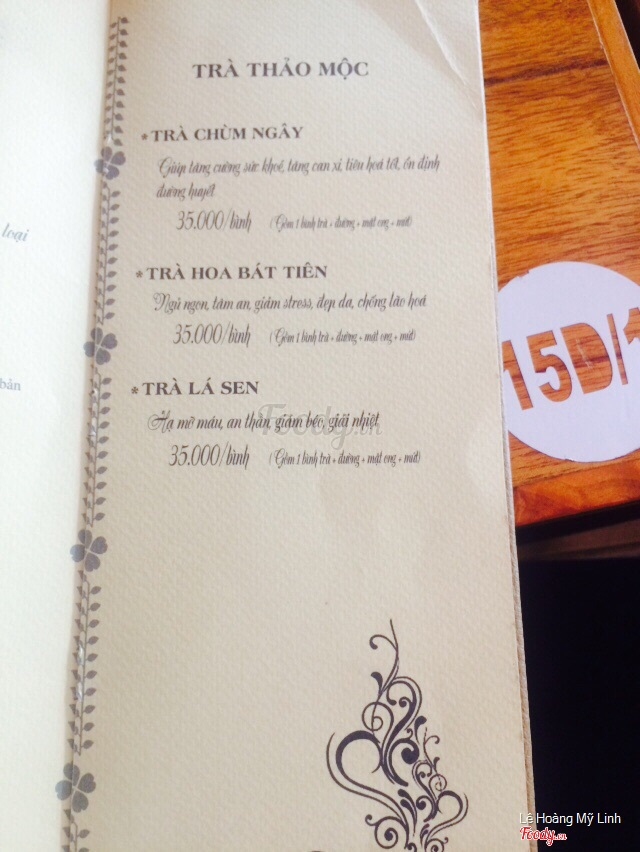 TRÀ THẢO MỘC
*TRÀ CHÙM NGÂY
Giúp tăng cường sức khoẻ, tăng can xi, tiêu hoá tốt, ổn định
đường huyết
35.000/bình (Gồm 1 bình trà + đường + mật ong + mứt)
*TRÀ HOA BÁT TIÊN
Ngủ ngon, tâm an, giảm stress, đẹp da, chống lão hoá
35.000/bình (Gồm 1 bình trà + đường + mật ong + mứt)
*TRÀ LÁ SEN
Hạ mỡ máu, an thần, giảm béo, giải nhiệt
35.000/bình (Gồm 1 bình trà + đường + mật ong + mứt)
loại
bàn
15D/1
Foody.vn
Lê Hoàng Mỹ Linh
Foody.vn